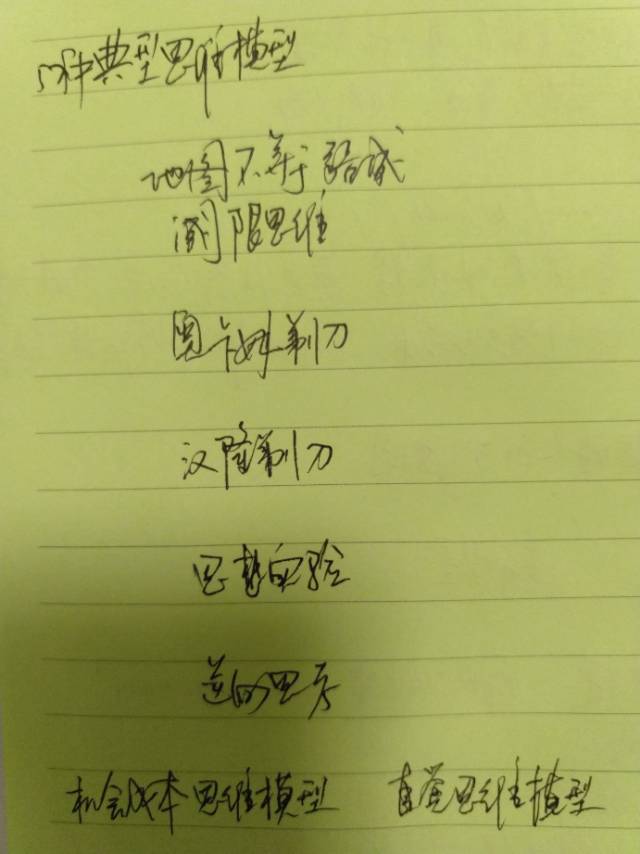 种典型思维模型
地图不等于疆域
阈限思维
奥卡姆剃刀
汉隆剃刀
思想实验
逆向思考
机会成本思维模型 直觉思维模型